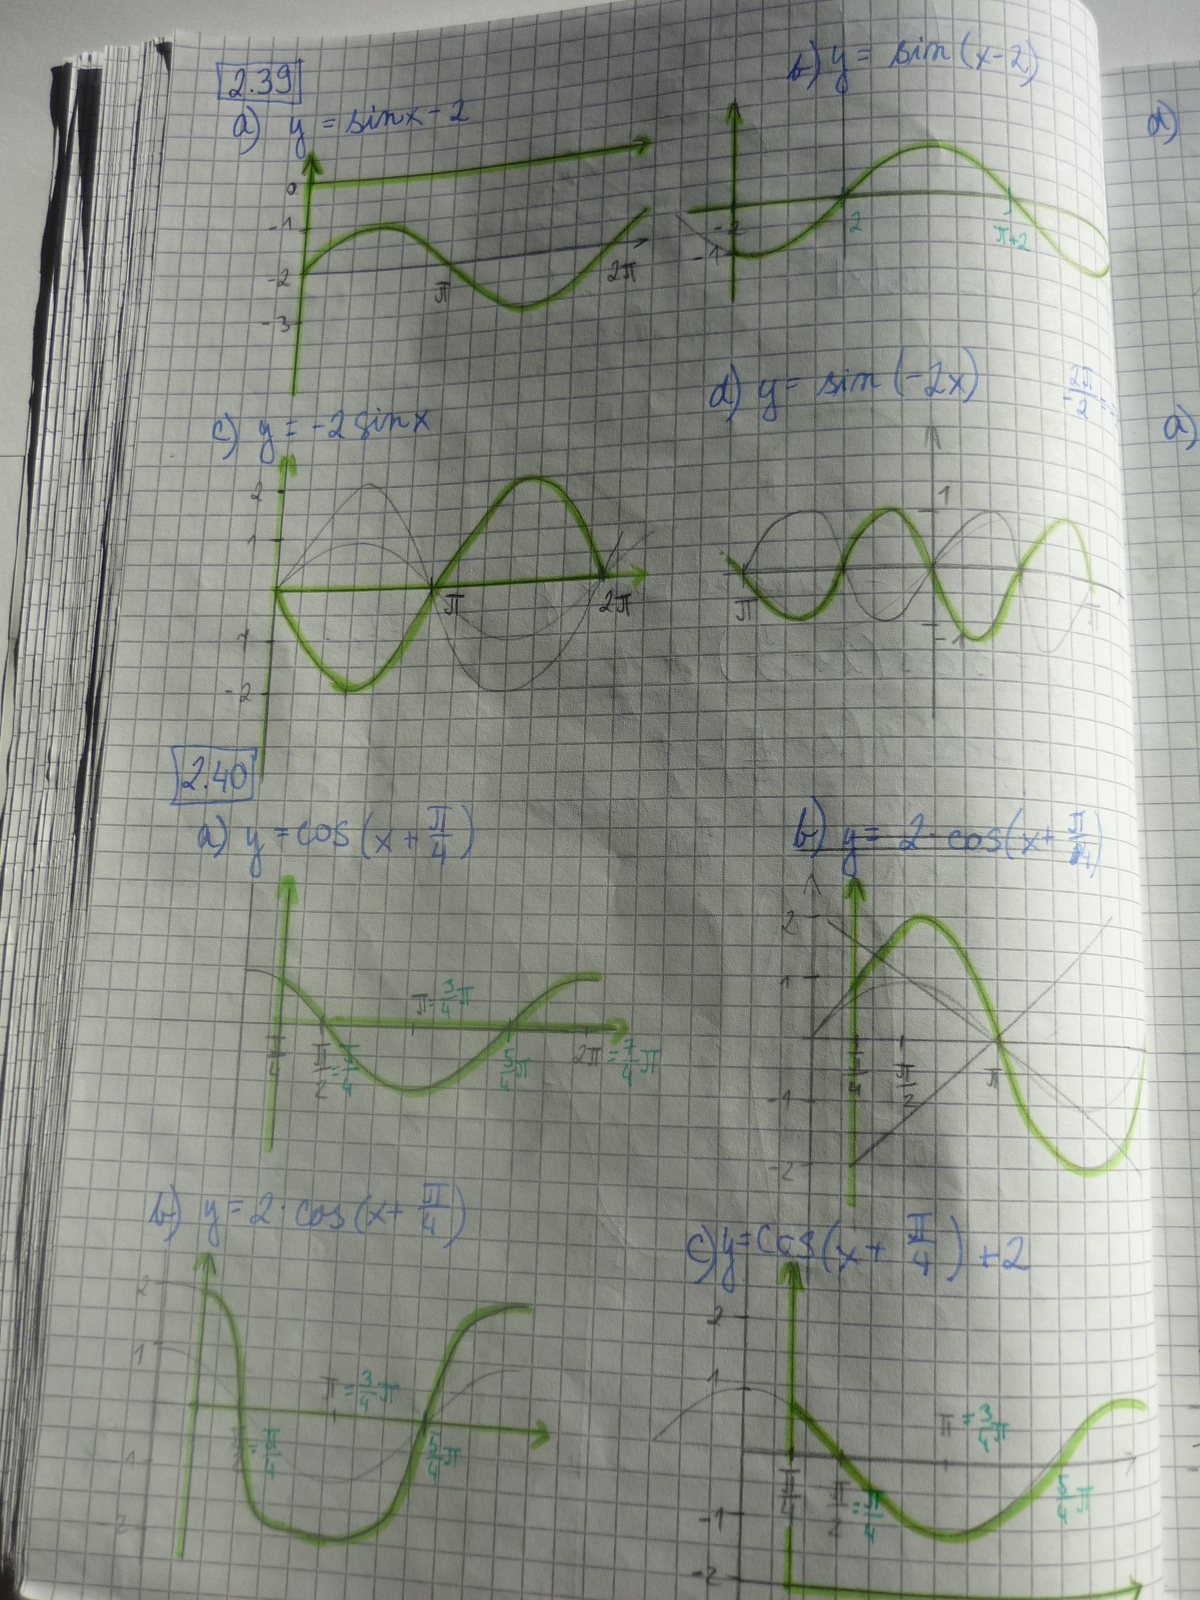 2.39
a) y = sinx - 2
0
-1
-2
-3
π
2π
b) y = sin(x-2)
-2
-1
2
π+2
c) y = -2 sinx
2
1
-1
-2
π
2π
d) y = sin(-2x)
2π/-2 =
1
-1
π
π
2.40
a) y = cos(x + π/4)
π/4
π/2 = π/4
π = 3/4 π
5/4 π
2π = 7/4 π
b) y = 2 · cos(x + π/4)
2
1
-1
-2
π/4
π/2
π
b) y = 2 · cos(x + π/4)
2
1
-1
-2
= π/4
π = 3/4 π
5/4 π
c) y = cos(x + π/4) + 2
2
1
-1
-2
π/4
π/2 = π/4
π = 3/4 π
5/4 π
d)
a)